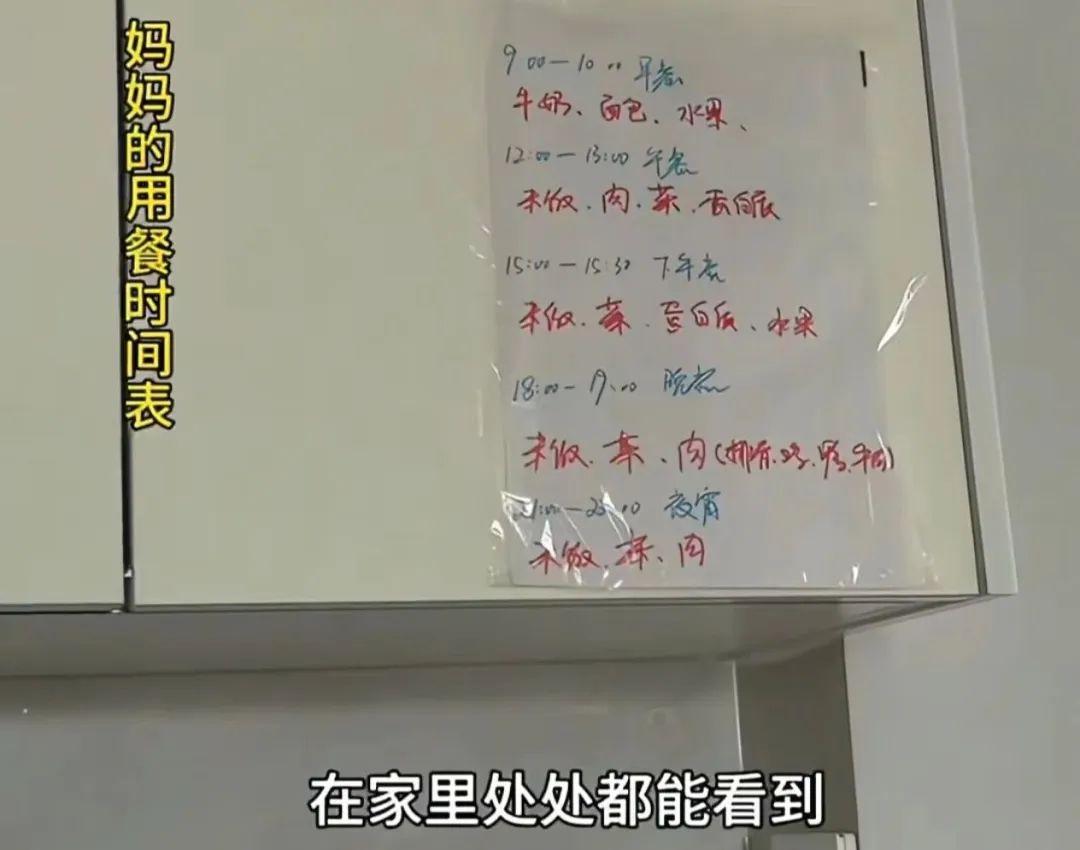 妈妈的用餐时间表
9 00—10 00 早餐
牛奶、面包、水果、
12:00—13:00 午餐
米饭、肉、菜、蛋白质
15:00—15:30 下午餐
米饭、菜、蛋白质、水果
18:00—19:00 晚餐
米饭、菜、肉(排骨、鸡、鸭、牛肉)
夜宵
米饭、菜、肉
在家里处处都能看到